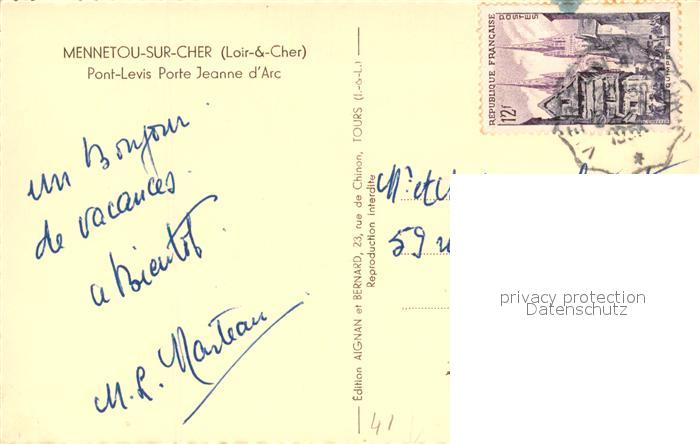 MENNETOU-SUR-CHER (Loir-&-Cher)
Pont-Levis Porte Jeanne d'Arc
un Bonjour
de vacances.
a Bientôt.
M. L. Marteau
Édition AIGNAN et BERNARD, 23, rue de Chinon, TOURS (I.-&-L.)
Reproduction Interdite
POSTES
REPUBLIQUE FRANÇAISE
12f
QUIMPER
Mr et
59
privacy protection
Datenschutz
41